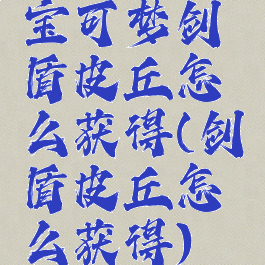 宝可梦剑
盾皮丘怎
么获得(剑
盾皮丘怎
么获得)